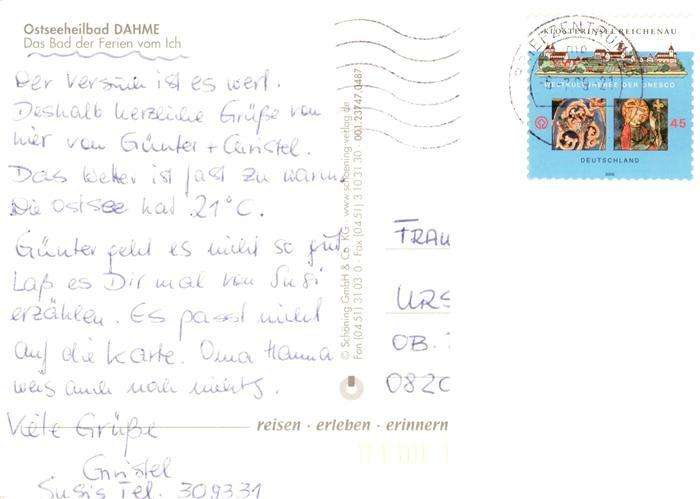 Ostseeheilbad DAHME
Das Bad der Ferien vom Ich
Der Versuch ist es wert.
Deshalb herzliche Grüße von
hier von Günter + Christel.
Das Wetter ist fast zu warm.
Die Ostsee hat 21°C.
Günter geht es nicht so gut
Laß es Dir mal von Susi
erzählen. Es passt nicht
auf die Karte. Oma Hanna
weis auch noch nichts.
Viele Grüße
Christel
Susis Tel. 309331
© Schöning GmbH & Co. KG · www.schoening-verlag.de · 001 23747 0487
Fon (04 51) 31 03 0 · Fax (04 51) 3 10 31 30
reisen · erleben · erinnern
KLOSTERINSEL REICHENAU
WELTKULTURERBE DER UNESCO
45
DEUTSCHLAND
FRAU
URS
OB.
082